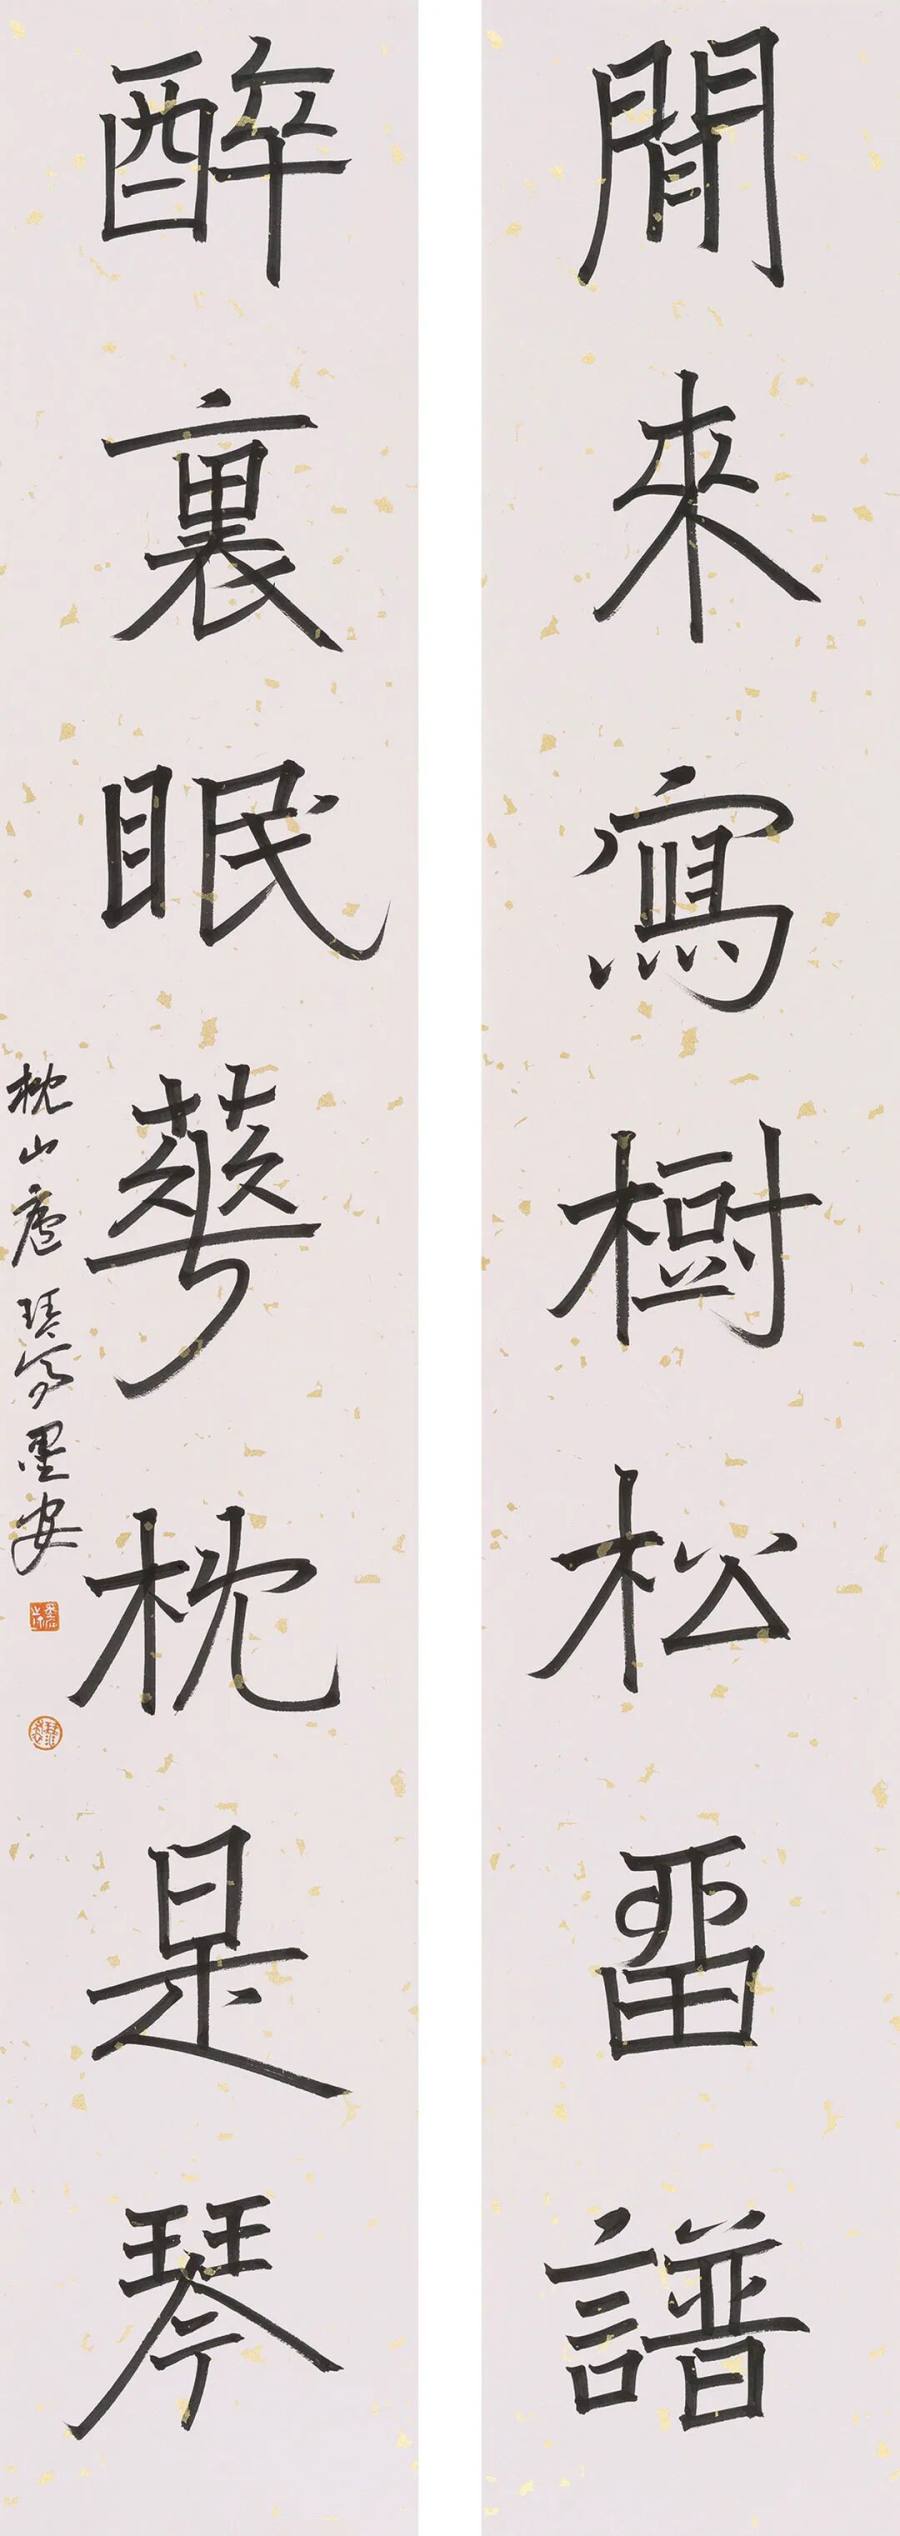 閒來寫樹松留譜
醉裏眠華枕是琴
枕山廬 琴寫墨安